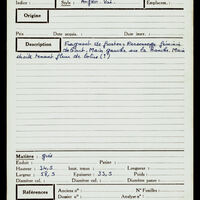 Index : Style : Angkor Vat. Emplacem. :
Origine
Prix Date acquis. : Date inscr. :
Description Fragment de fronton, Personnage féminin
debout, Main gauche sur la hanche, Main
droite tenant fleur de lotus (?)
Matière : grès
Enduit : Patine :
Hauteur : Longueur : Poids :
Largeur : 58,5 Epaisseur : 33,5 Profondeur :
Diamètre col. : Diamètre panse :
Références Ancien n° : N° Fouilles :
Dossier n° : Analyse n° :